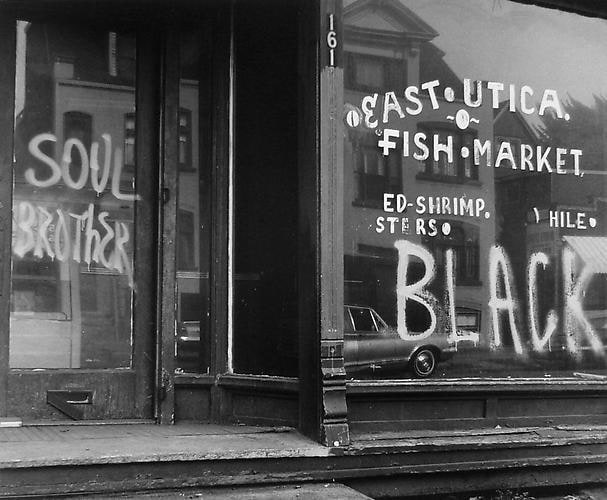 161
SOUL
BROTHER
EAST·UTICA.
-O-
FISH·MARKET.
ED-SHRIMP.
STERS
HILE
BLACK